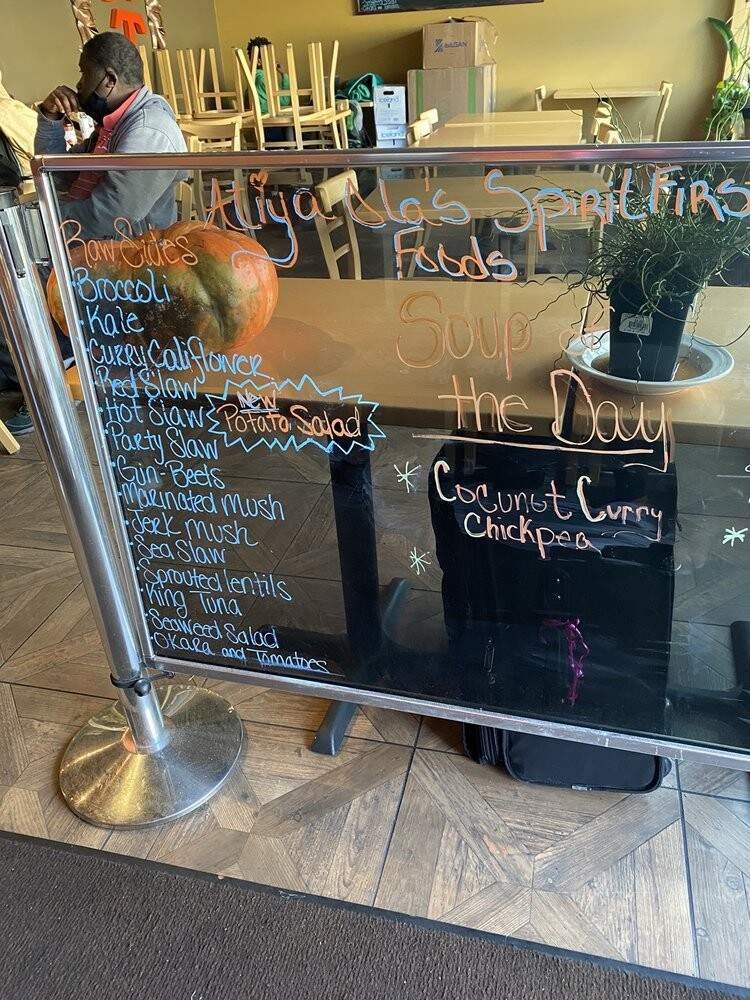 Aliya Ola's SpiritFirst
Foods
Raw Sides
Broccoli
Kale
Curry Califlower
Red Slaw
Hot Slaw
Party Slaw
Gin-Beets
Marinated mush
Jerk mush
Sea Slaw
Sprouted lentils
King Tuna
Seaweed Salad
Okara and Tomatoes
New
Potato Salad
Soup of
the Day
Cocunut Curry
Chickpea